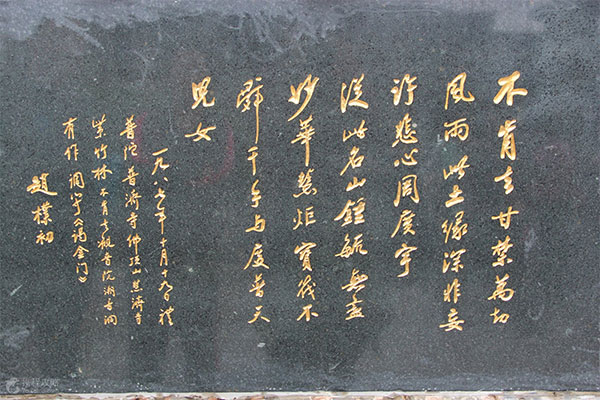 不肯去甘禁萬劫
風雨此土緣深非妄
許悲心周廣宇
從此名山鍾毓無盡
妙華慧炬寶筏不
辭千手與度普天
兒女
一九八七年十月十九日禮
普陀普濟寺佛頂山慧濟寺
紫竹林不肯去觀音院潮音洞
有作調寄《謁金門》
趙樸初